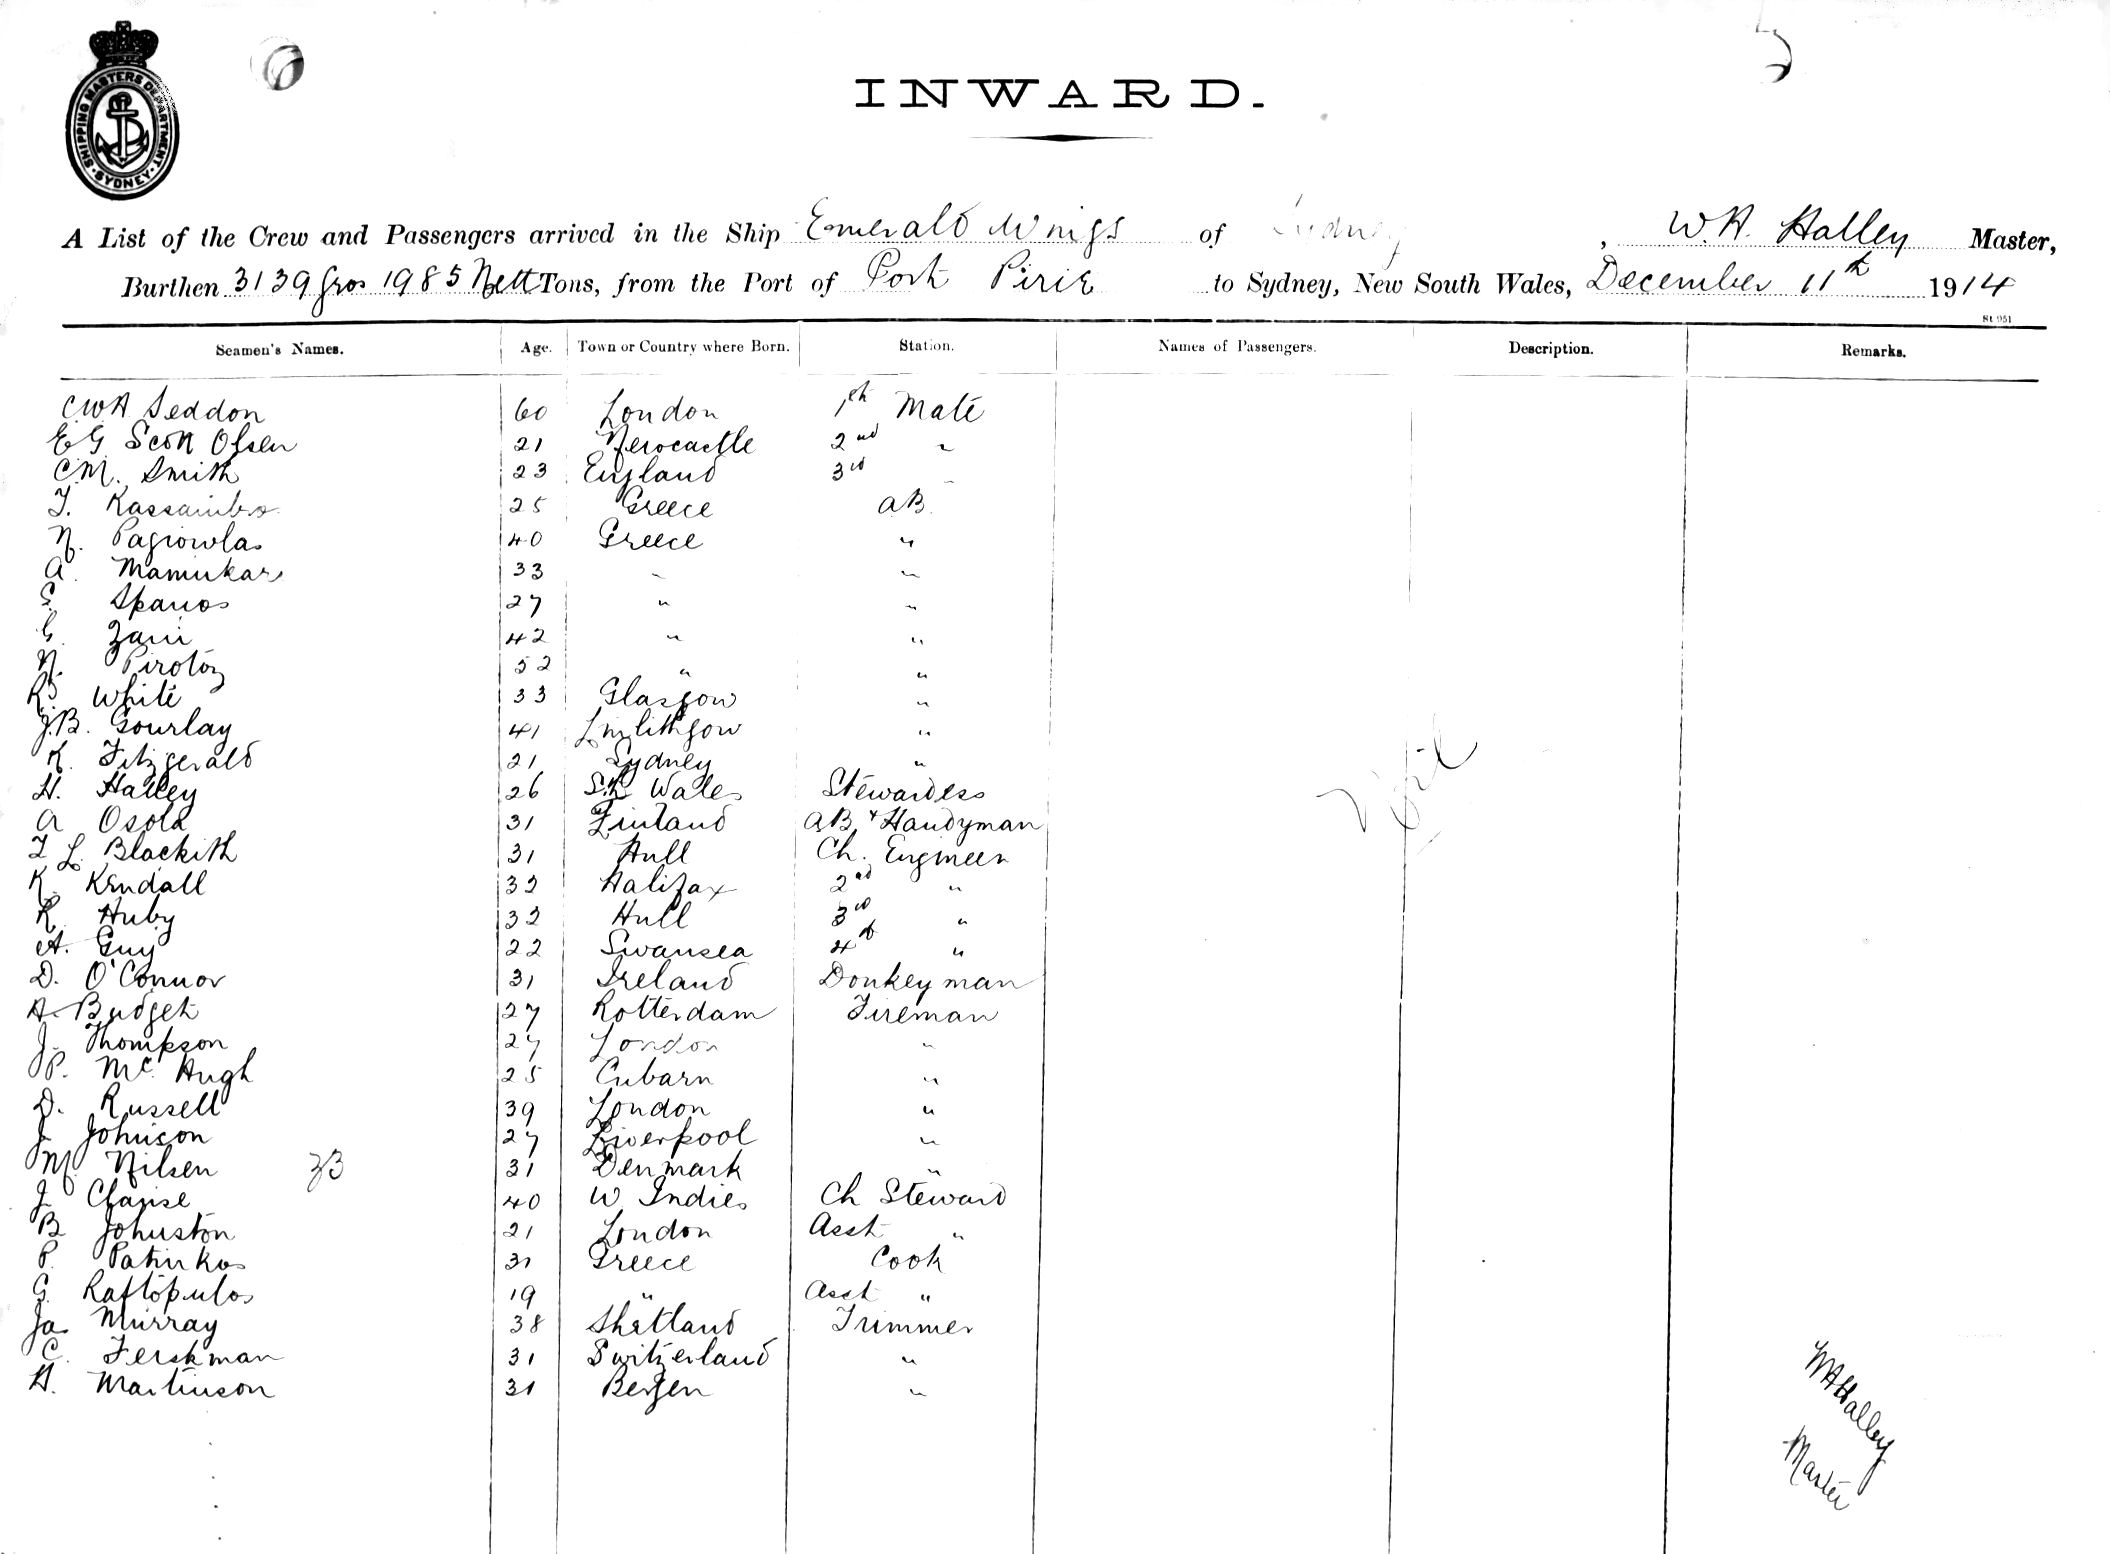 SHIPPING MASTERS DEPARTMENT · SYDNEY ·
INWARD.
A List of the Crew and Passengers arrived in the Ship Emerald Wings of Sydney, W.H. Halley Master,
Burthen 3139 Gros 1985 Nett Tons, from the Port of Port Pirie to Sydney, New South Wales, December 11th 1914
St 951
Seamen's Names. Age. Town or Country where Born. Station. Names of Passengers. Description. Remarks.
CWH Seddon 60 London 1th Mate
EG Scott Olsen 21 Newcastle 2nd "
C.M. Smith 23 England 3rd "
T. 25 Greece AB
N. 40 Greece "
A. Mamukar 33 " "
S. Spanos 27 " "
G. Zani 42 " "
N. 52 " "
R. White 33 Glasgow "
J.B. Gourlay 41 Linlithgow "
K. Fitzgerald 21 Sydney "
H. Halley 26 Sth Wales Stewardess
A Osola 31 Finland AB & Handyman
T L. Blackith 31 Hull Ch. Engineer
K. Kendall 32 Halifax 2nd "
R. Huby 32 Hull 3rd "
A. Guy 22 Swansea 4th "
D. O'Connor 31 Ireland Donkeyman
A. Budget 27 Rotterdam Fireman
J. Thompson 27 London "
P. Mc Hugh 25 "
D. Russell 39 London "
J. Johnson 27 Liverpool "
M. Nilsen 33 31 Denmark "
J. 40 W. Indies Ch Steward
B Johnston 21 London Asst "
P. Patrikos 31 Greece Cook
G. Raftopulos 19 " Asst "
Ja Murray 38 Shetland Trimmer
C. Ferskman 31 Switzerland "
H. Martinson 31 Bergen "
WHHalley
Master